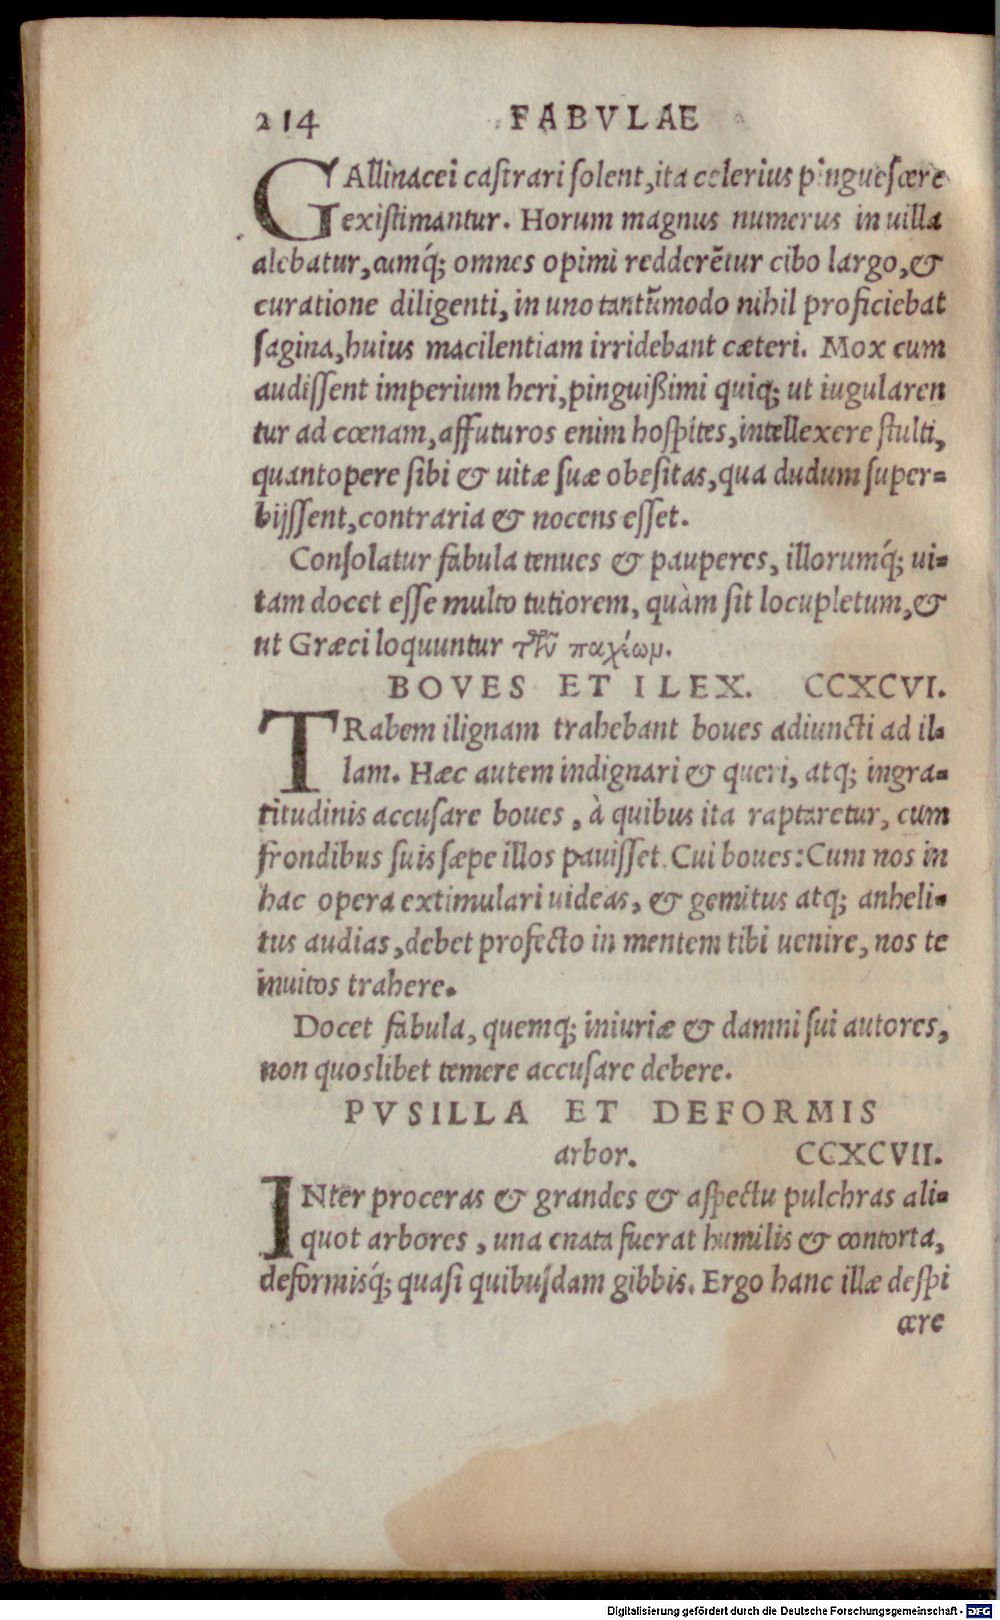 214 FABVLAE
GAllinacei castrari solent, ita celerius pinguescere
existimantur. Horum magnus numerus in uilla
alebatur, cumq́; omnes opimi redderẽtur cibo largo, &
curatione diligenti, in uno tantũmodo nihil proficiebat
sagina, huius macilentiam irridebant cæteri. Mox cum
audissent imperium heri, pinguißimi quiq; ut iugularen
tur ad cœnam, affuturos enim hospites, intellexere stulti,
quantopere sibi & uitæ suæ obesitas, qua dudum super-
bijssent, contraria & nocens esset.
Consolatur fabula tenues & pauperes, illorumq́; ui-
tam docet esse multo tutiorem, quàm sit locupletum, &
ut Græci loquuntur
BOVES ET ILEX. CCXCVI.
TRabem ilignam trahebant boues adiuncti ad il-
lam. Hæc autem indignari & queri, atq; ingra-
titudinis accusare boues, à quibus ita raptaretur, cum
frondibus suis sæpe illos pauisset. Cui boues: Cum nos in
hac opera extimulari uideas, & gemitus atq; anheli-
tus audias, debet profecto in mentem tibi uenire, nos te
inuitos trahere.
Docet fabula, quemq; iniuriæ & damni sui autores,
non quoslibet temere accusare debere.
PVSILLA ET DEFORMIS
arbor. CCXCVII.
INter proceras & grandes & aspectu pulchras ali-
quot arbores, una enata fuerat humilis & contorta,
deformisq́; quasi quibusdam gibbis. Ergo hanc illæ despi
cere
Digitalisierung gefördert durch die Deutsche Forschungsgemeinschaft - DFG